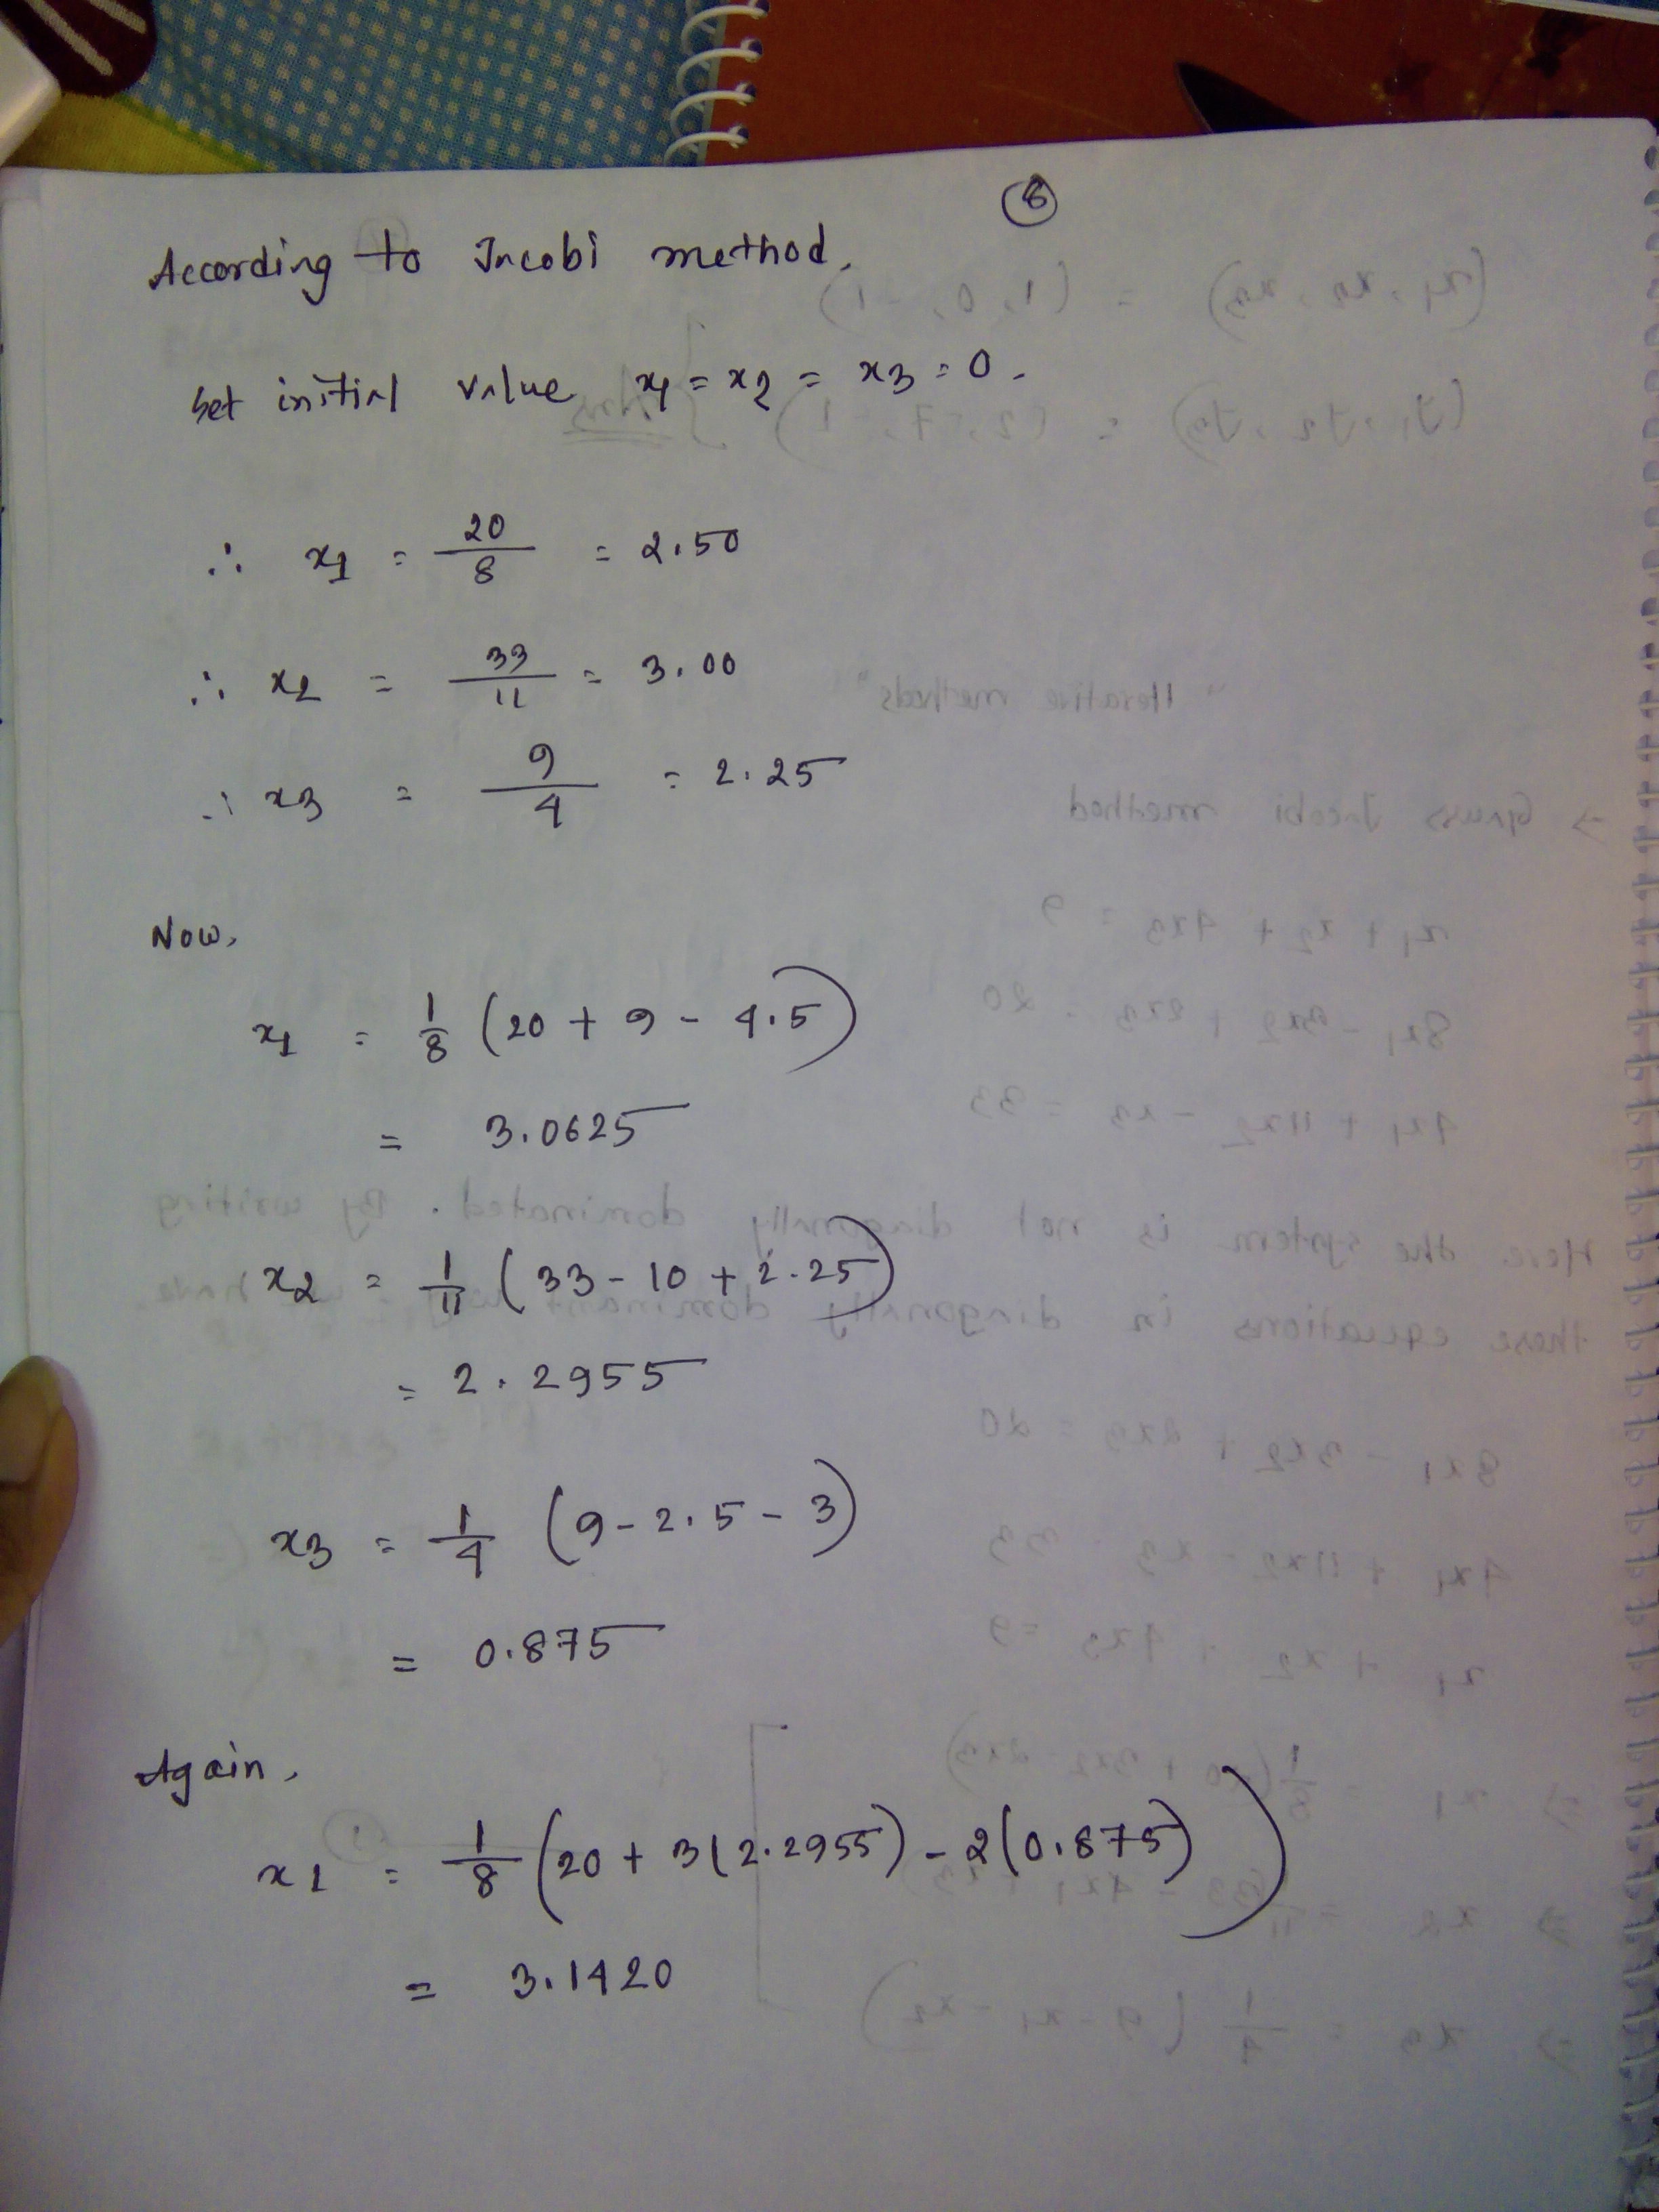 6
According to Jacobi method,
Set initial value x1 = x2 = x3 = 0.
∴ x1 = 20/8 = 2.50
∴ x2 = 33/11 = 3.00
∴ x3 = 9/4 = 2.25
Now,
x1 = 1/8 (20 + 9 - 4.5)
= 3.0625
x2 = 1/11 (33 - 10 + 2.25)
= 2.2955
x3 = 1/4 (9 - 2.5 - 3)
= 0.875
Again,
x1 = 1/8 (20 + 3(2.2955) - 2(0.875))
= 3.1420